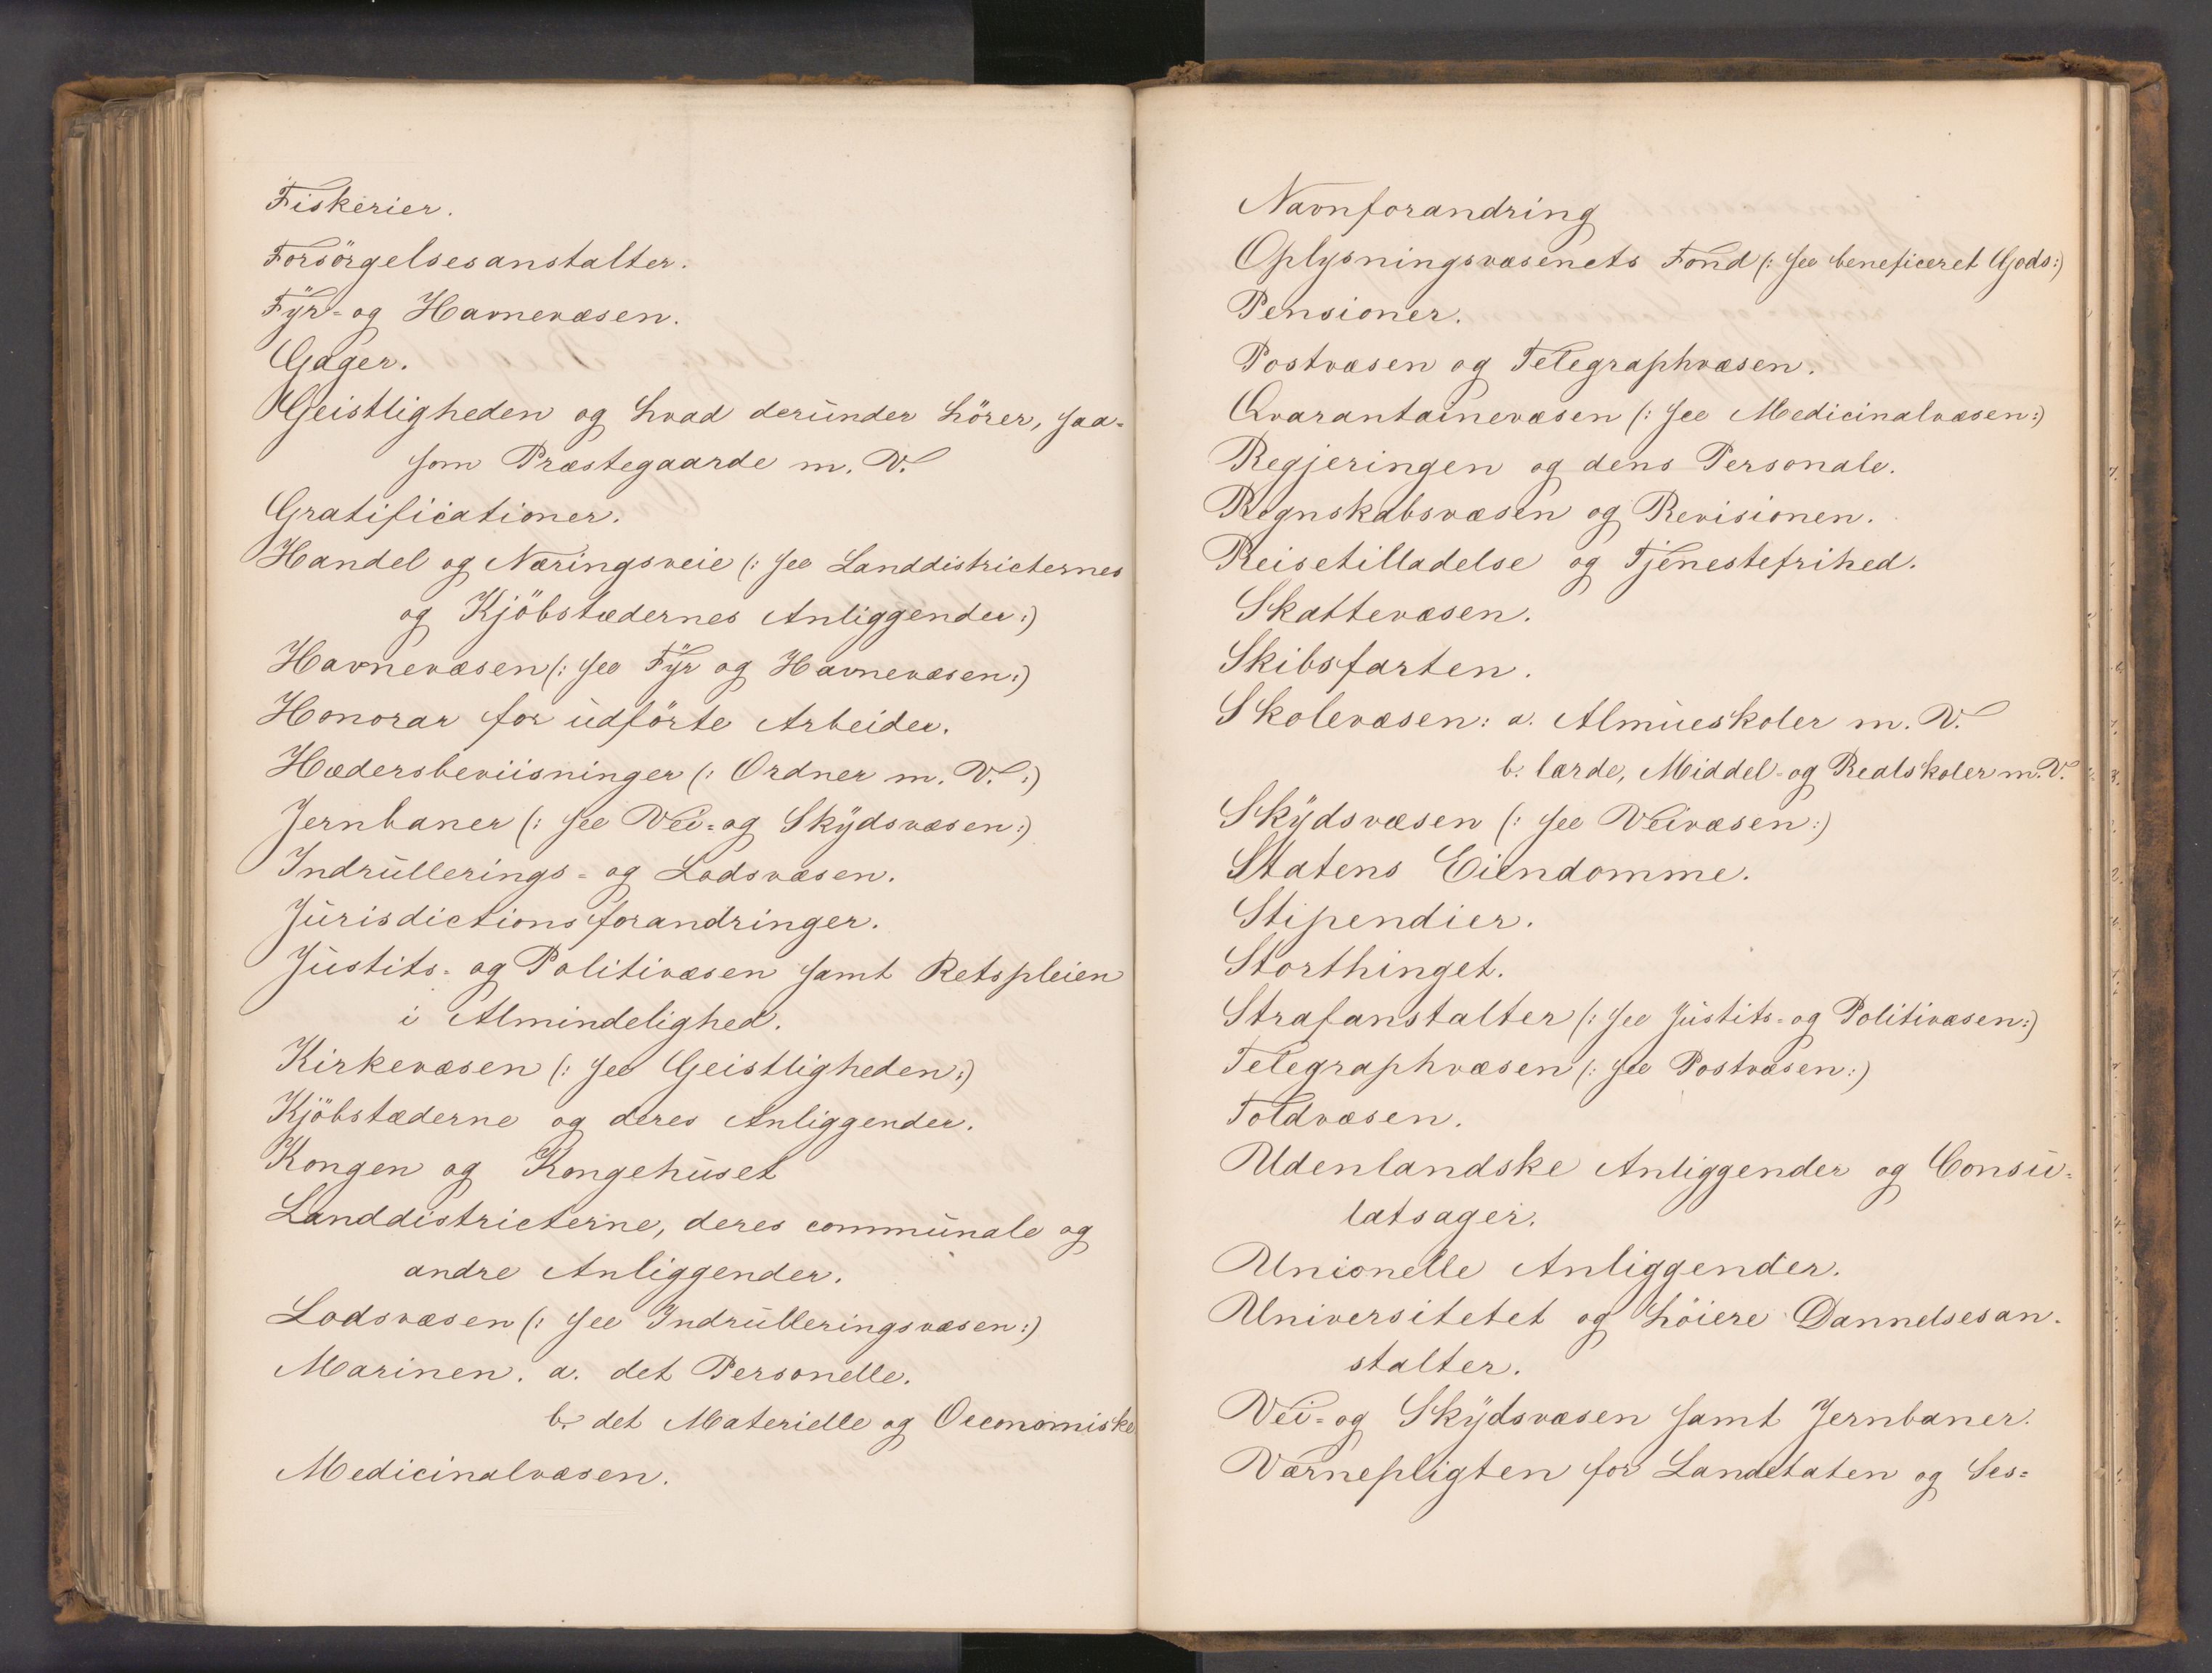 Fiskerier.
Forsörgelsesanstalter.
Fÿr- og Havnevæsen.
Gager.
Geistligheden og hvad derunder hörer, saa-
som Præstegaarde m. V.
Gratificationer.
Handel og Næringsveie (: see Landdistricternes
og Kjöbstædernes Anliggender :)
Havnevæsen (: see Fÿr og Havnevæsen :)
Honorar for udförte Arbeider.
Hædersbeviisninger (: Ordner m. V. :)
Jernbaner (: see Vei- og Skÿdsvæsen :)
Indrullerings- og Lodsvæsen.
Jurisdictionsforandringer.
Justits- og Politivæsen samt Retspleien
i Almindelighed.
Kirkevæsen (: see Geistligheden :)
Kjöbstæderne og deres Anliggender.
Kongen og Kongehuset
Landdistricterne, deres communale og
andre Anliggender.
Lodsvæsen (: see Indrulleringsvæsen :)
Marinen. a. det Personelle.
b. det Materielle og Oeconomiske
Medicinalvæsen.
Navnforandring
Oplysningsvæsenets Fond (: see beneficeret Gods :)
Pensioner.
Postvæsen og Telegraphvæsen.
Qvarantainevæsen (: see Medicinalvæsen :)
Regjeringen og dens Personale.
Regnskabsvæsen og Revisionen.
Reisetilladelse og Tjenestefrihed.
Skattevæsen.
Skibsfarten.
Skolevæsen: a. Almueskoler m. V.
b. lærde, Middel- og Realskoler m. V.
Skÿdsvæsen (: see Veivæsen :)
Statens Eiendomme.
Stipendier.
Storthinget.
Strafanstalter (: see Justits- og Politivæsen :)
Telegraphvæsen (: see Postvæsen :)
Toldvæsen.
Udenlandske Anliggender og Consu-
latsager.
Unionelle Anliggender.
Universitetet og höiere Dannelsesan-
stalter.
Vei- og Skÿdsvæsen samt Jernbaner.
Værnepligten for Landetaten og Ses-